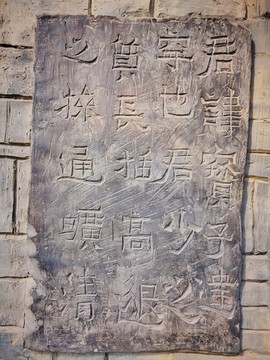 君諱寶子建
寧也君少之
質長挺高邈
之操通曠清